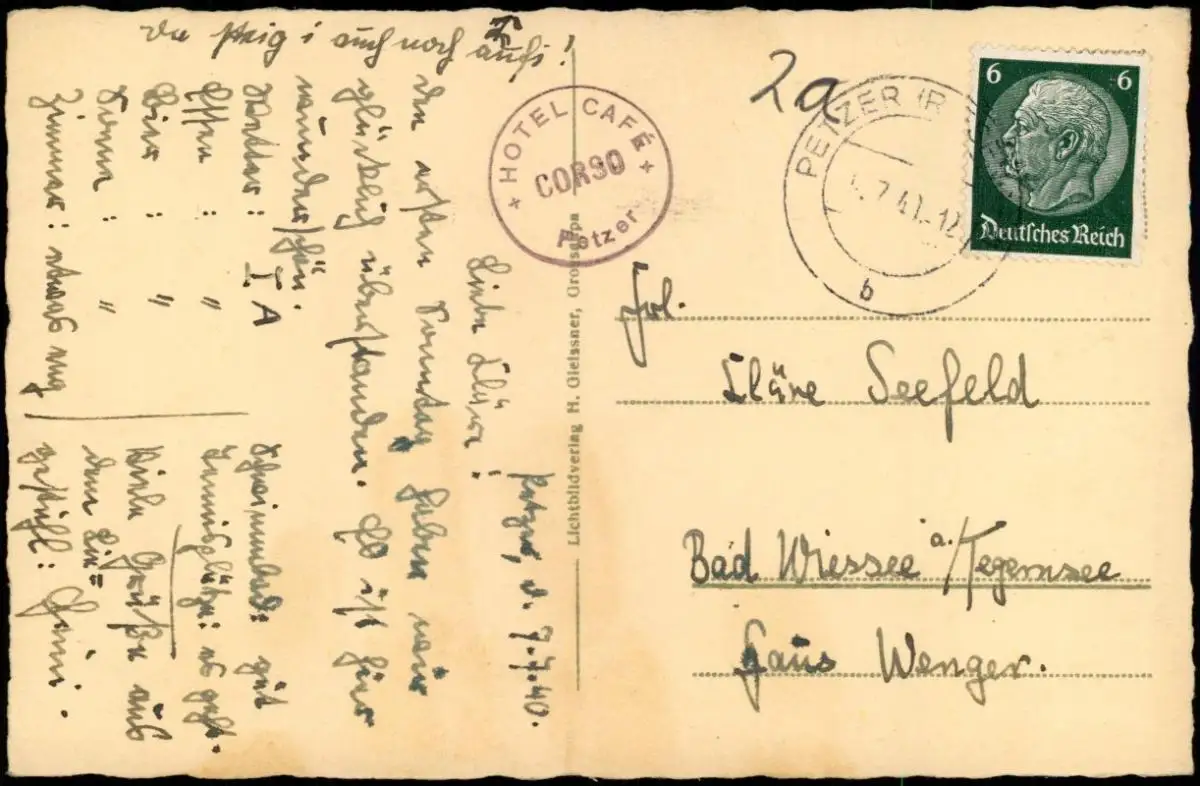 Da steig i auch noch aufi!
Petzer, d. 7.7.40.
Liebe Kläre!
Den ersten Sonntag haben wir
glücklich überstanden. Es ist hier
wunderschön.
Wetter: I. A
Essen : "
Bier : "
Sonne : "
Zimmer: etwas eng
Schwimmbad: gut
Tennisplätze: es geht.
Viele Grüße aus
dem
Hotel Café
Corso
Petzer
Lichtbildverlag H. Gleissner, Grossaupa
2a
PETZER (R
7.4 -12
b
6 6
Deutsches Reich
Frl.
Kläre Seefeld
Bad Wiessee a./Tegernsee
Haus Wenger.